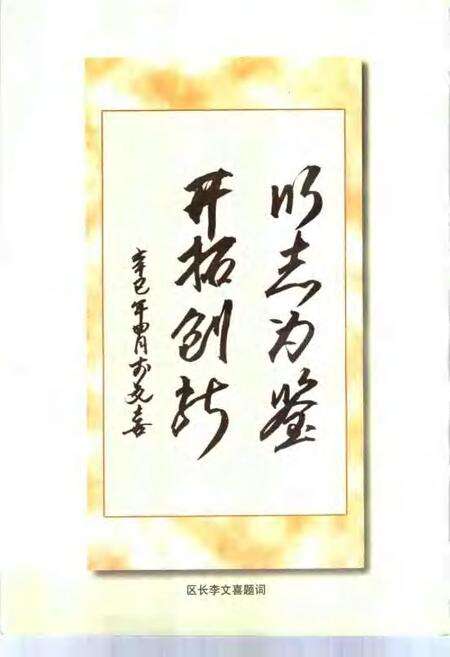 以志为鉴
开拓创新
辛巳年四月李文喜
区长李文喜题词